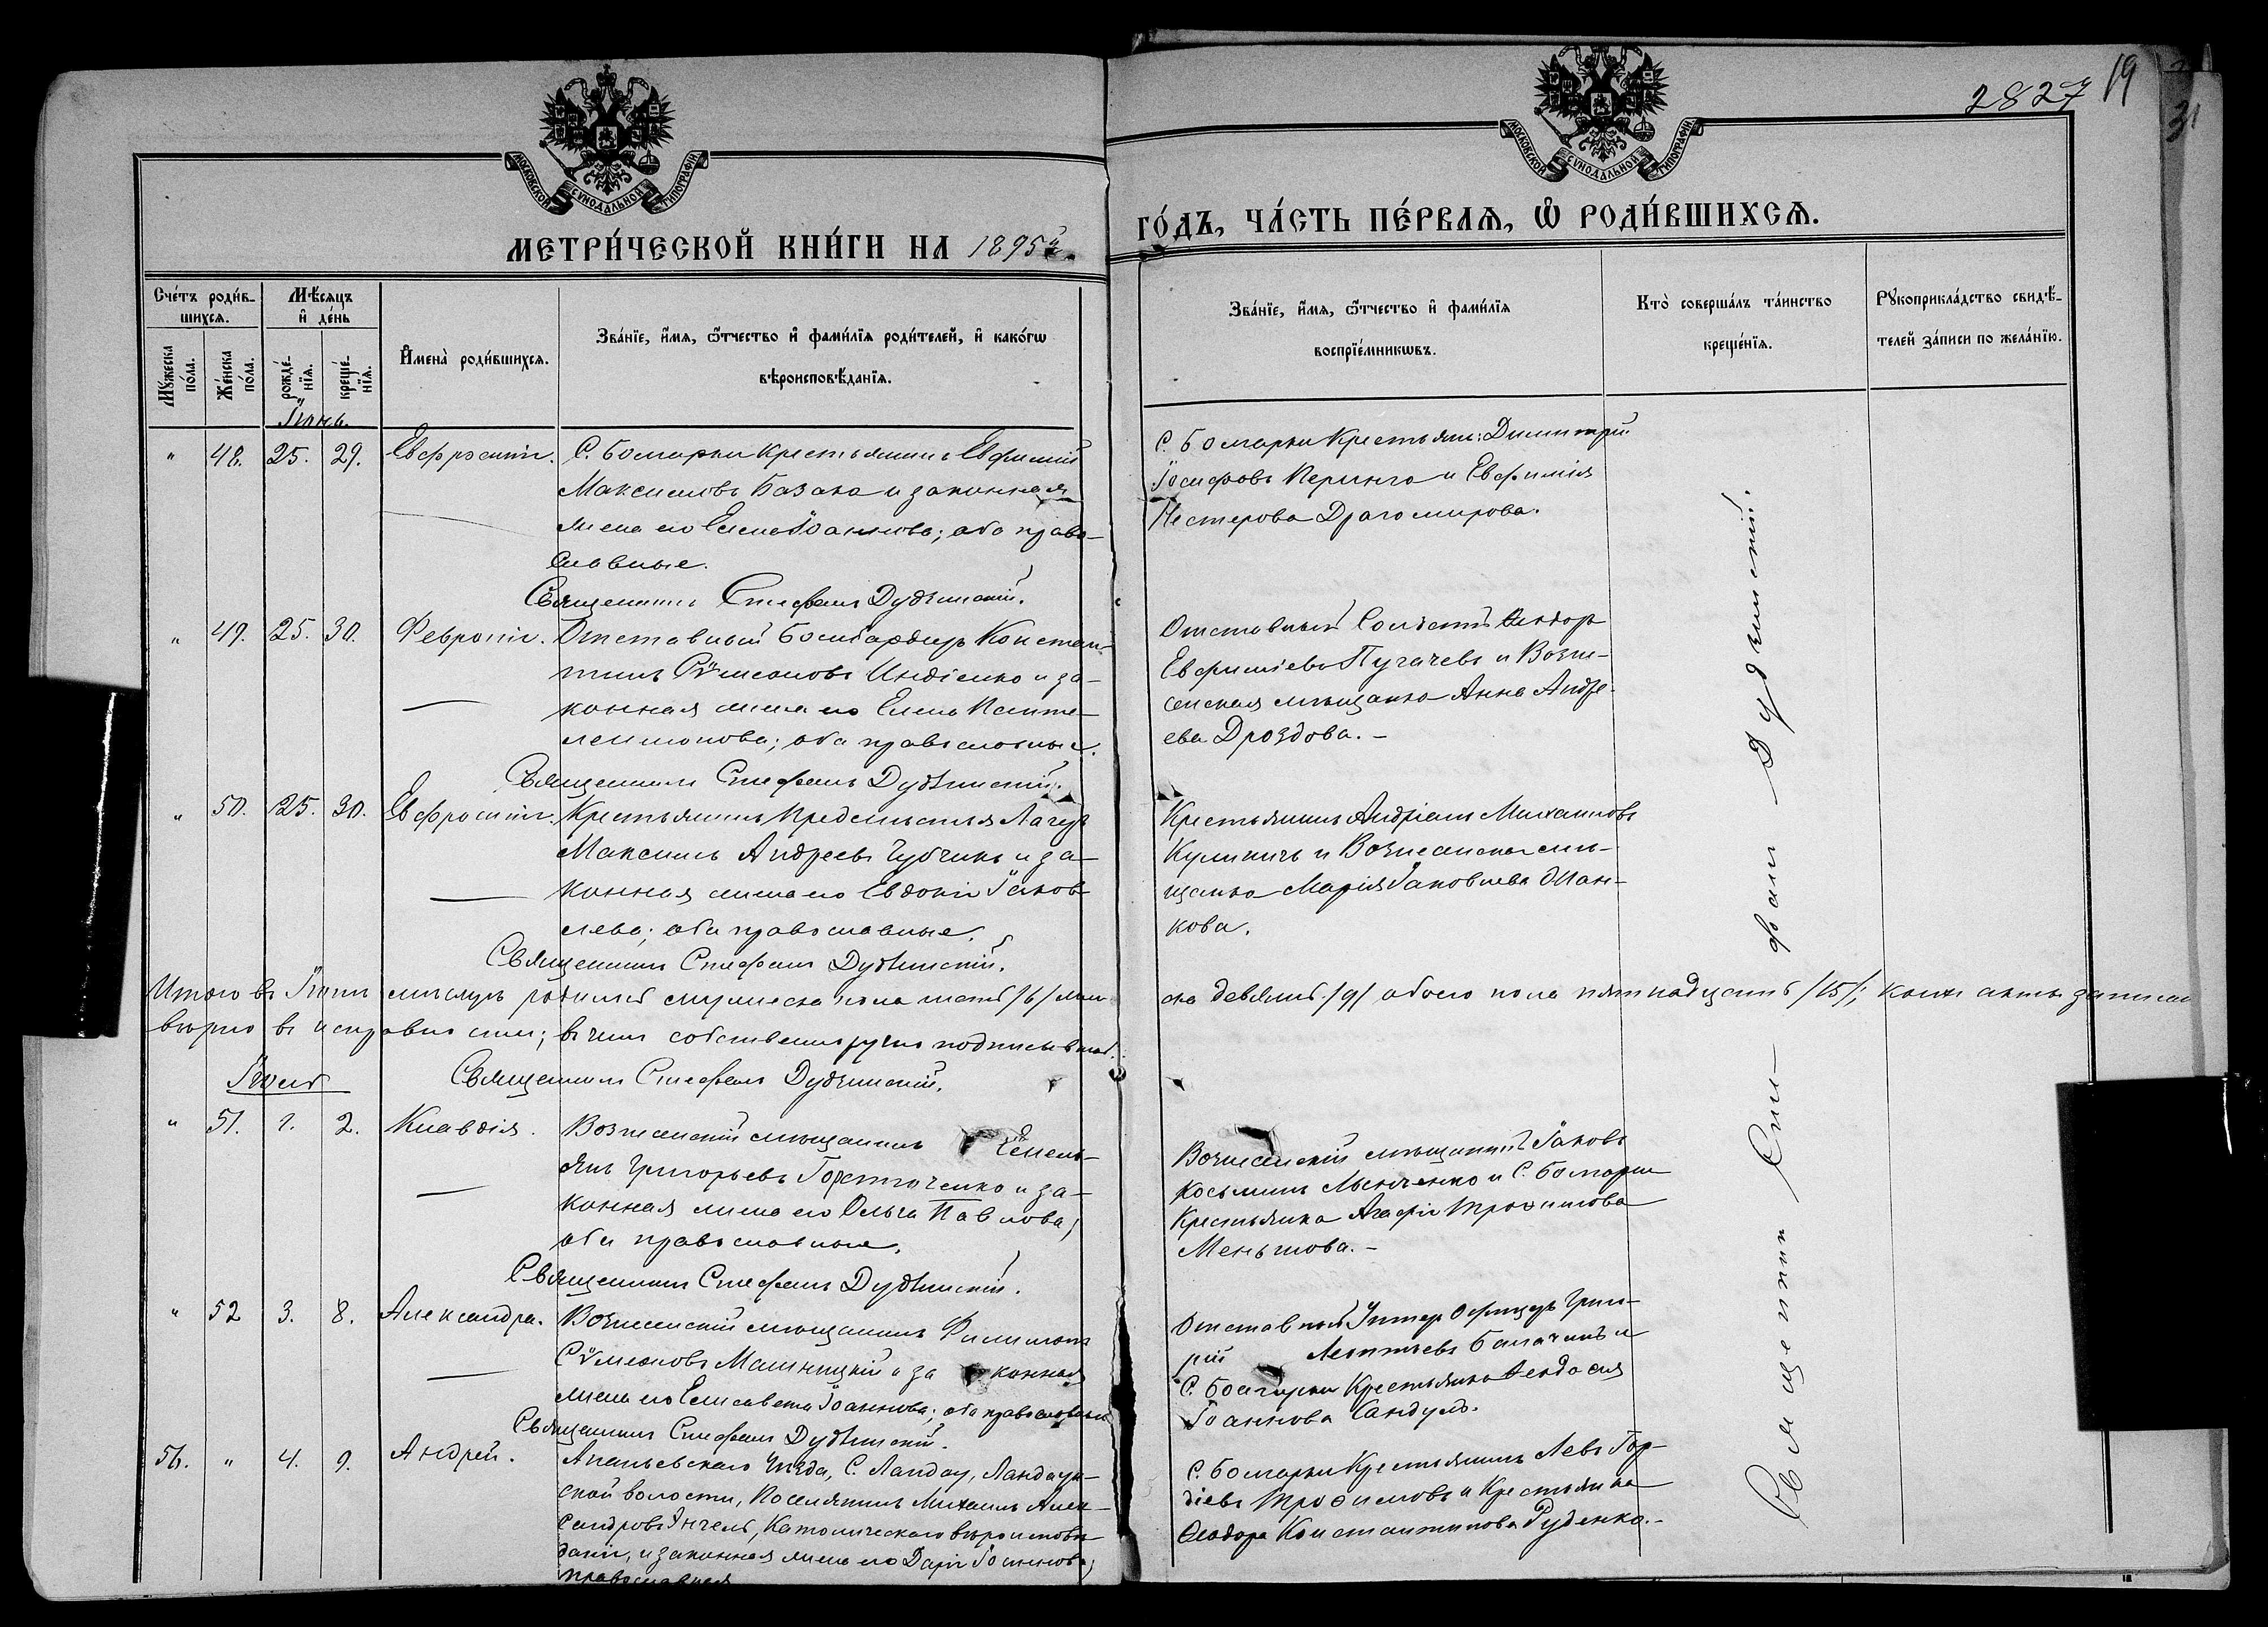 2827 19
31
МОСКОВСКОЙ СѴНОДАЛЬНОЙ ТИПОГРАФІИ
МОСКОВСКОЙ СѴНОДАЛЬНОЙ ТИПОГРАФІИ
МЕТРИ́ЧЕСКОЙ КНИ́ГИ НА 1895й
ГО́ДЪ, ЧА́СТЬ ПЕ́РВАѦ, Ѡ РОДИ́ВШИХСѦ.
Сче́тъ роди́в-
шихсѧ.
Мѣ́сѧцъ
и҆ де́нь
Мꙋ́жеска
по́ла.
Же́нска
по́ла.
рожде́-
нїѧ.
креще́-
нїѧ.
И҆мена̀ роди́вшихсѧ.
Зва́нїе, и҆́мѧ, ѻ҆́тчество и҆ фами́лїѧ роди́телей, и҆ како́гѡ
вѣроисповѣ́данїѧ.
Зва́нїе, и҆́мѧ, ѻ҆́тчество и҆ фами́лїѧ
воспрїе́мникѡвъ.
Кто̀ соверша́лъ та́инство
креще́нїѧ.
Рꙋкоприкла́дство свидѣ́-
телей за́писи по жела́нїю.
Іюнь.
" 48. 25. 29. Евфросинія. С. Болгарки Крестьянинъ Евфимій
Максимовъ Базака и законная
жена его Елена Іоаннова; оба право-
славные.
Священникъ Стефанъ Дудзинскій.
С. Болгарки Крестьян: Димитрій
Іосифовъ Перинго и Евфимія
Нестерова Драгомирова.
" 49. 25. 30. Февронія. Отставный Бомбардиръ Констан-
тинъ Сѵмеоновъ Индіенко и за-
конная жена его Елена Панте-
леимонова; оба православные.
Священникъ Стефанъ Дудзинскій.
Отставный Солдатъ Ѳеодоръ
Евфиміевъ Пугачевъ и Возне-
сенская мѣщанка Анна Андре-
ева Дроздова. -
" 50. 25. 30. Евфросинія. Крестьянинъ Предмѣстья Лагеръ
Максимъ Андреевъ Чубчикъ и за-
конная жена его Евдокія Іаков-
лева; оба православные.
Священникъ Стефанъ Дудзинскій.
Крестьянинъ Андріанъ Михаиловъ
Куликичъ и Вознесенская мѣ-
щанка Марія Іаковлева Ман-
кова.
Итого въ Іюнѣ мѣсяцѣ родилось мужеска пола шесть /6/ жен-
ска девять /9/ обоего пола пятнадцать /15/; коихъ акты записаны
вѣрно въ исправности; въ чемъ собственноручно подписываюсь.
Священникъ Стефанъ Дудзинскій.
Іюль
" 51. 1. 2. Клавдія. Вознесенскій мѣщанинъ Емель-
янъ Григорьевъ Горстюченко и за-
конная жена его Ольга Павлова;
оба православные.
Священникъ Стефанъ Дудзинскій.
Вознесенскій мѣщанинъ Іаковъ
Косьминъ Лысченко и С. Болгарки
Крестьянка Агафія Трофимова
Меньшова. -
" 52 3. 8. Александра. Вознесенскій мѣщанинъ Филимонъ
Сѵмеоновъ Малиницкій и законная
жена его Елисавета Іоаннова; оба православные
Священникъ Стефанъ Дудзинскій.
Отставный Унтеръ Офицеръ Григо-
рій Леонтьевъ Балачинъ и
С. Болгарки Крестьянка Ѳеодосія
Іоаннова Сандулъ.
56. " 4. 9. Андрей. Ананьевскаго Уѣзда, С. Ландау, Ландаус-
ской волости, Поселянинъ Михаилъ Алек-
сандровъ Энгель, Католическаго вѣроисповѣ-
данія, и законная жена его Дарія Іоаннова,
православная
С. Болгарки Крестьянинъ Левъ Гор-
діевъ Трофимовъ и Крестьянка
Ѳеодора Константинова Руденко. -
Священникъ Стефанъ Дудзинскій.